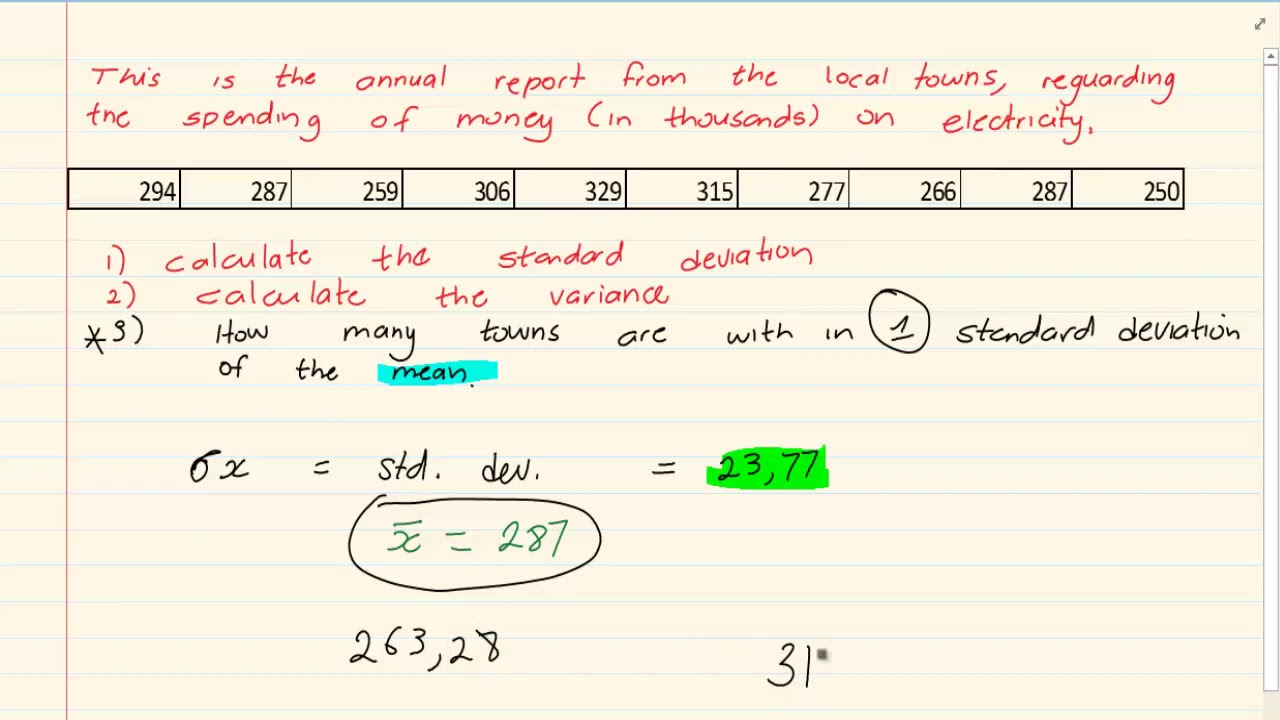 This is the annual report from the local towns, reguarding
the spending of money (in thousands) on electricity.
294 287 259 306 329 315 277 266 287 250
1) calculate the standard deviation
2) calculate the variance
*3) How many towns are with in 1 standard deviation
of the mean.
σx = std. dev. = 23,77
x̄ = 287
263,28 31